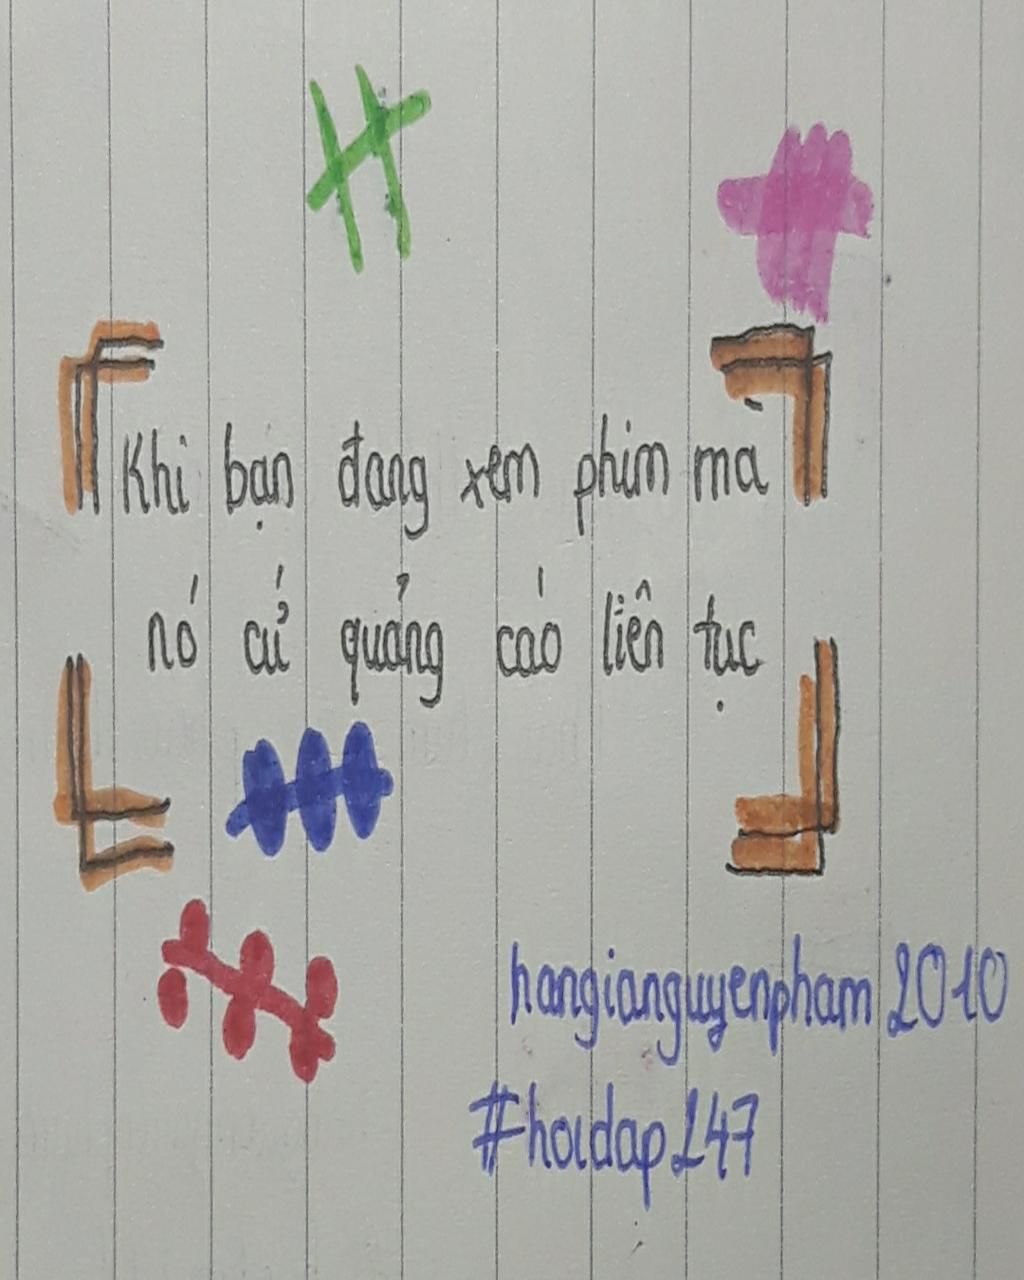 Khi bạn đang xem phim mà
nó cứ quảng cáo liên tục
hangianguyenpham 2010
#hoidap247